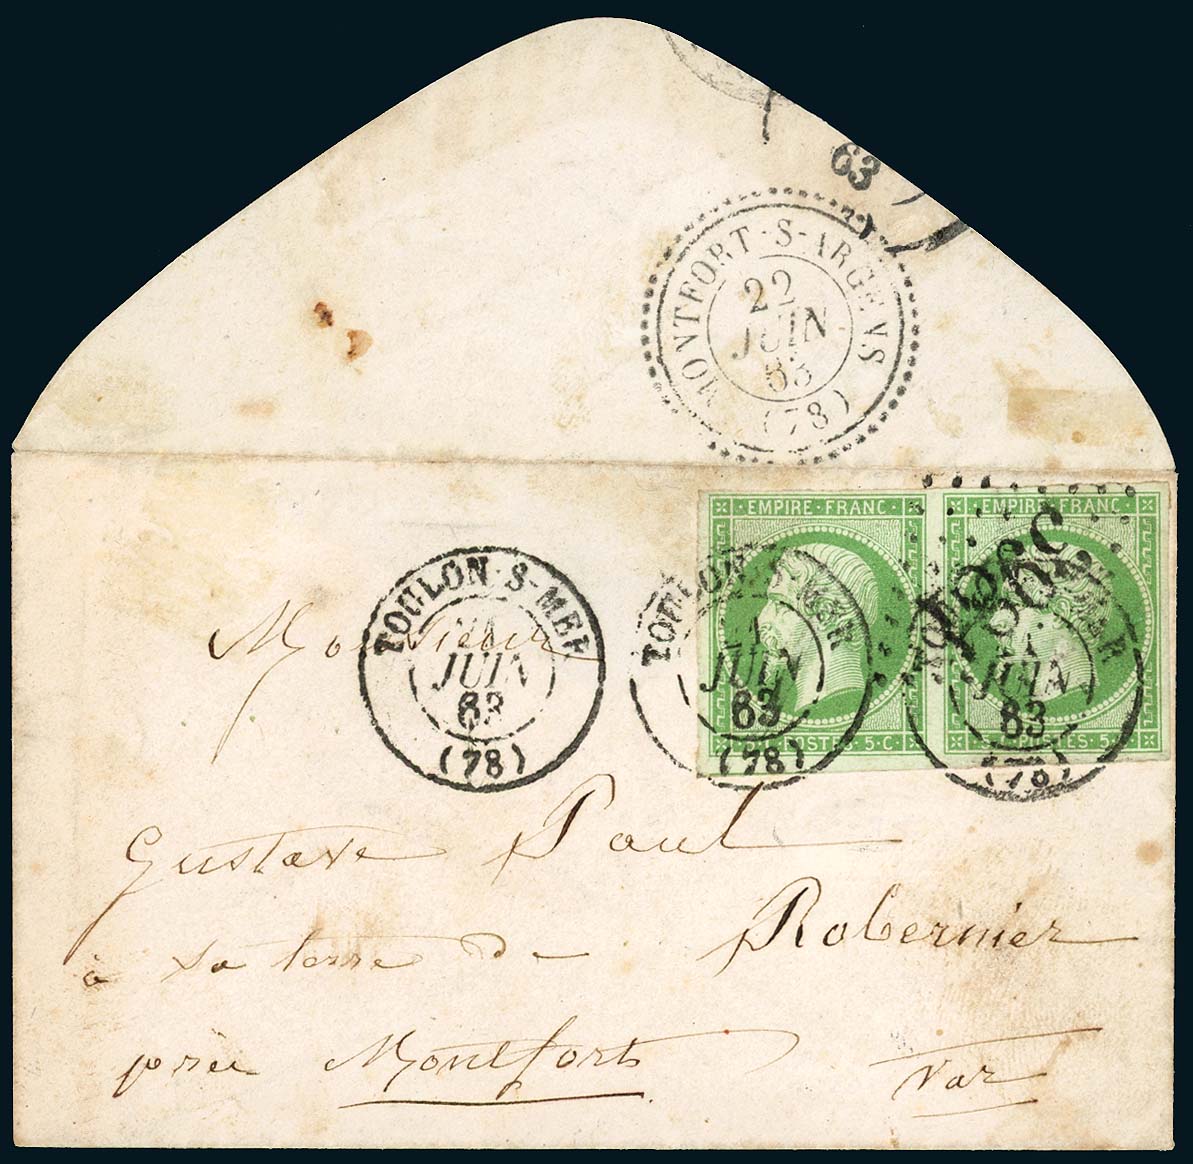 63
MONTFORT-S-ARGENS
22
JUIN
63
(78)
EMPIRE·FRANC·
EMPIRE·FRANC·
POSTES·5·C·
TOULON-S-MER
21
JUIN
63
(78)
TOULON-S-MER
21
JUIN
63
(78)
MER
JUIN
63
(78)
Monsieur
Gustave Paul
à sa terre de Robernier
près Montfort Var